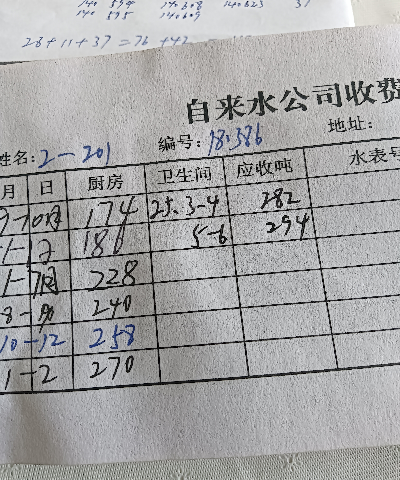 140 594 140608 140623 31
140 595 140609
28+11+37=76+42=
自来水公司收费
姓名:2-201 编号:18.386 地址:
月 日 厨房 卫生间 应收吨 水表号
174 25.3-4 282
186 5-6 294
228
240
10-12 258
1-2 270